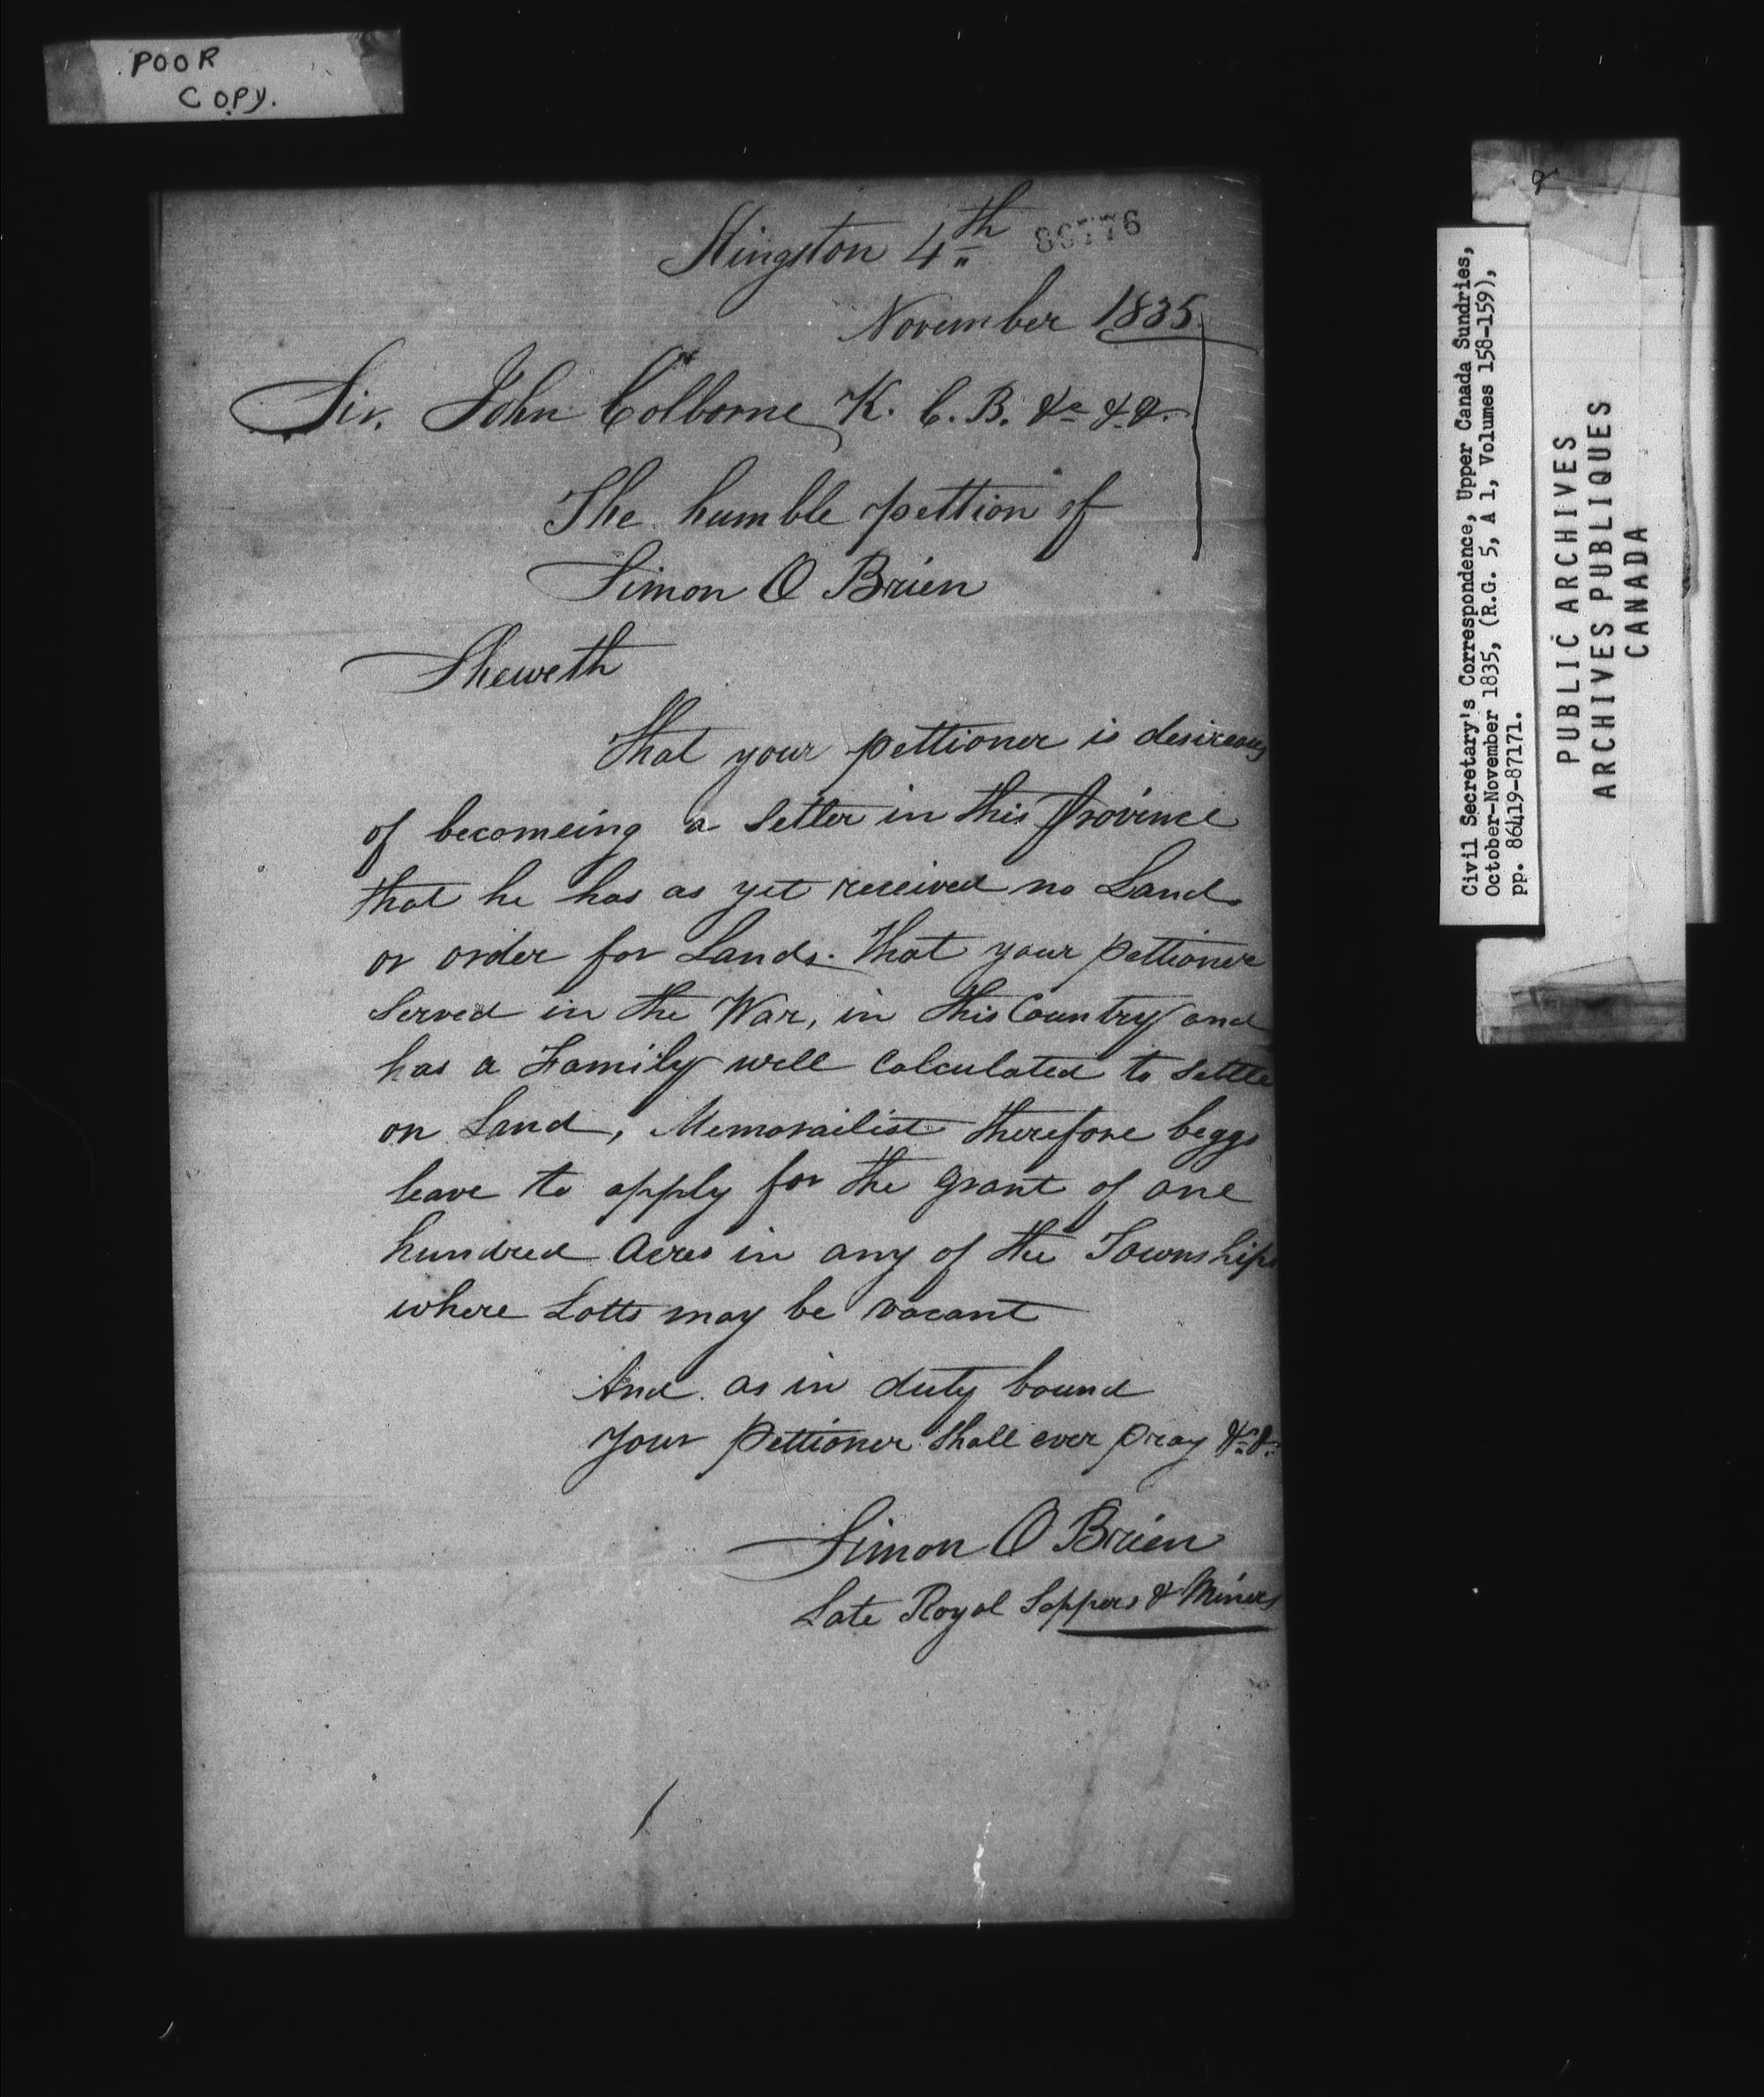 POOR
COPY.
Kingston 4th 86776
November 1835
Sir. John Colborne K. C. B. &c &c.
The humble pettion of
Simon O Brien
Sheweth
That your pettioner is desireous
of becomeing a Setler in this Province
that he has as yet received no Land
or order for Lands. That your pettioner
Served in the War, in this Country and
has a Family well Calculated to Settle
on Land, Memorailist therefore beggs
leave to apply for the grant of one
hundred Acres in any of the Townships
where Lotts may be vacant
And as in duty bound
Your Pettioner Shall ever Pray &c &c
Simon O Brien
Late Royal Sappers & Miners
Civil Secretary's Correspondence, Upper Canada Sundries,
October-November 1835, (R.G. 5, A 1, Volumes 158-159),
pp. 86419-87171.
PUBLIC ARCHIVES
ARCHIVES PUBLIQUES
CANADA